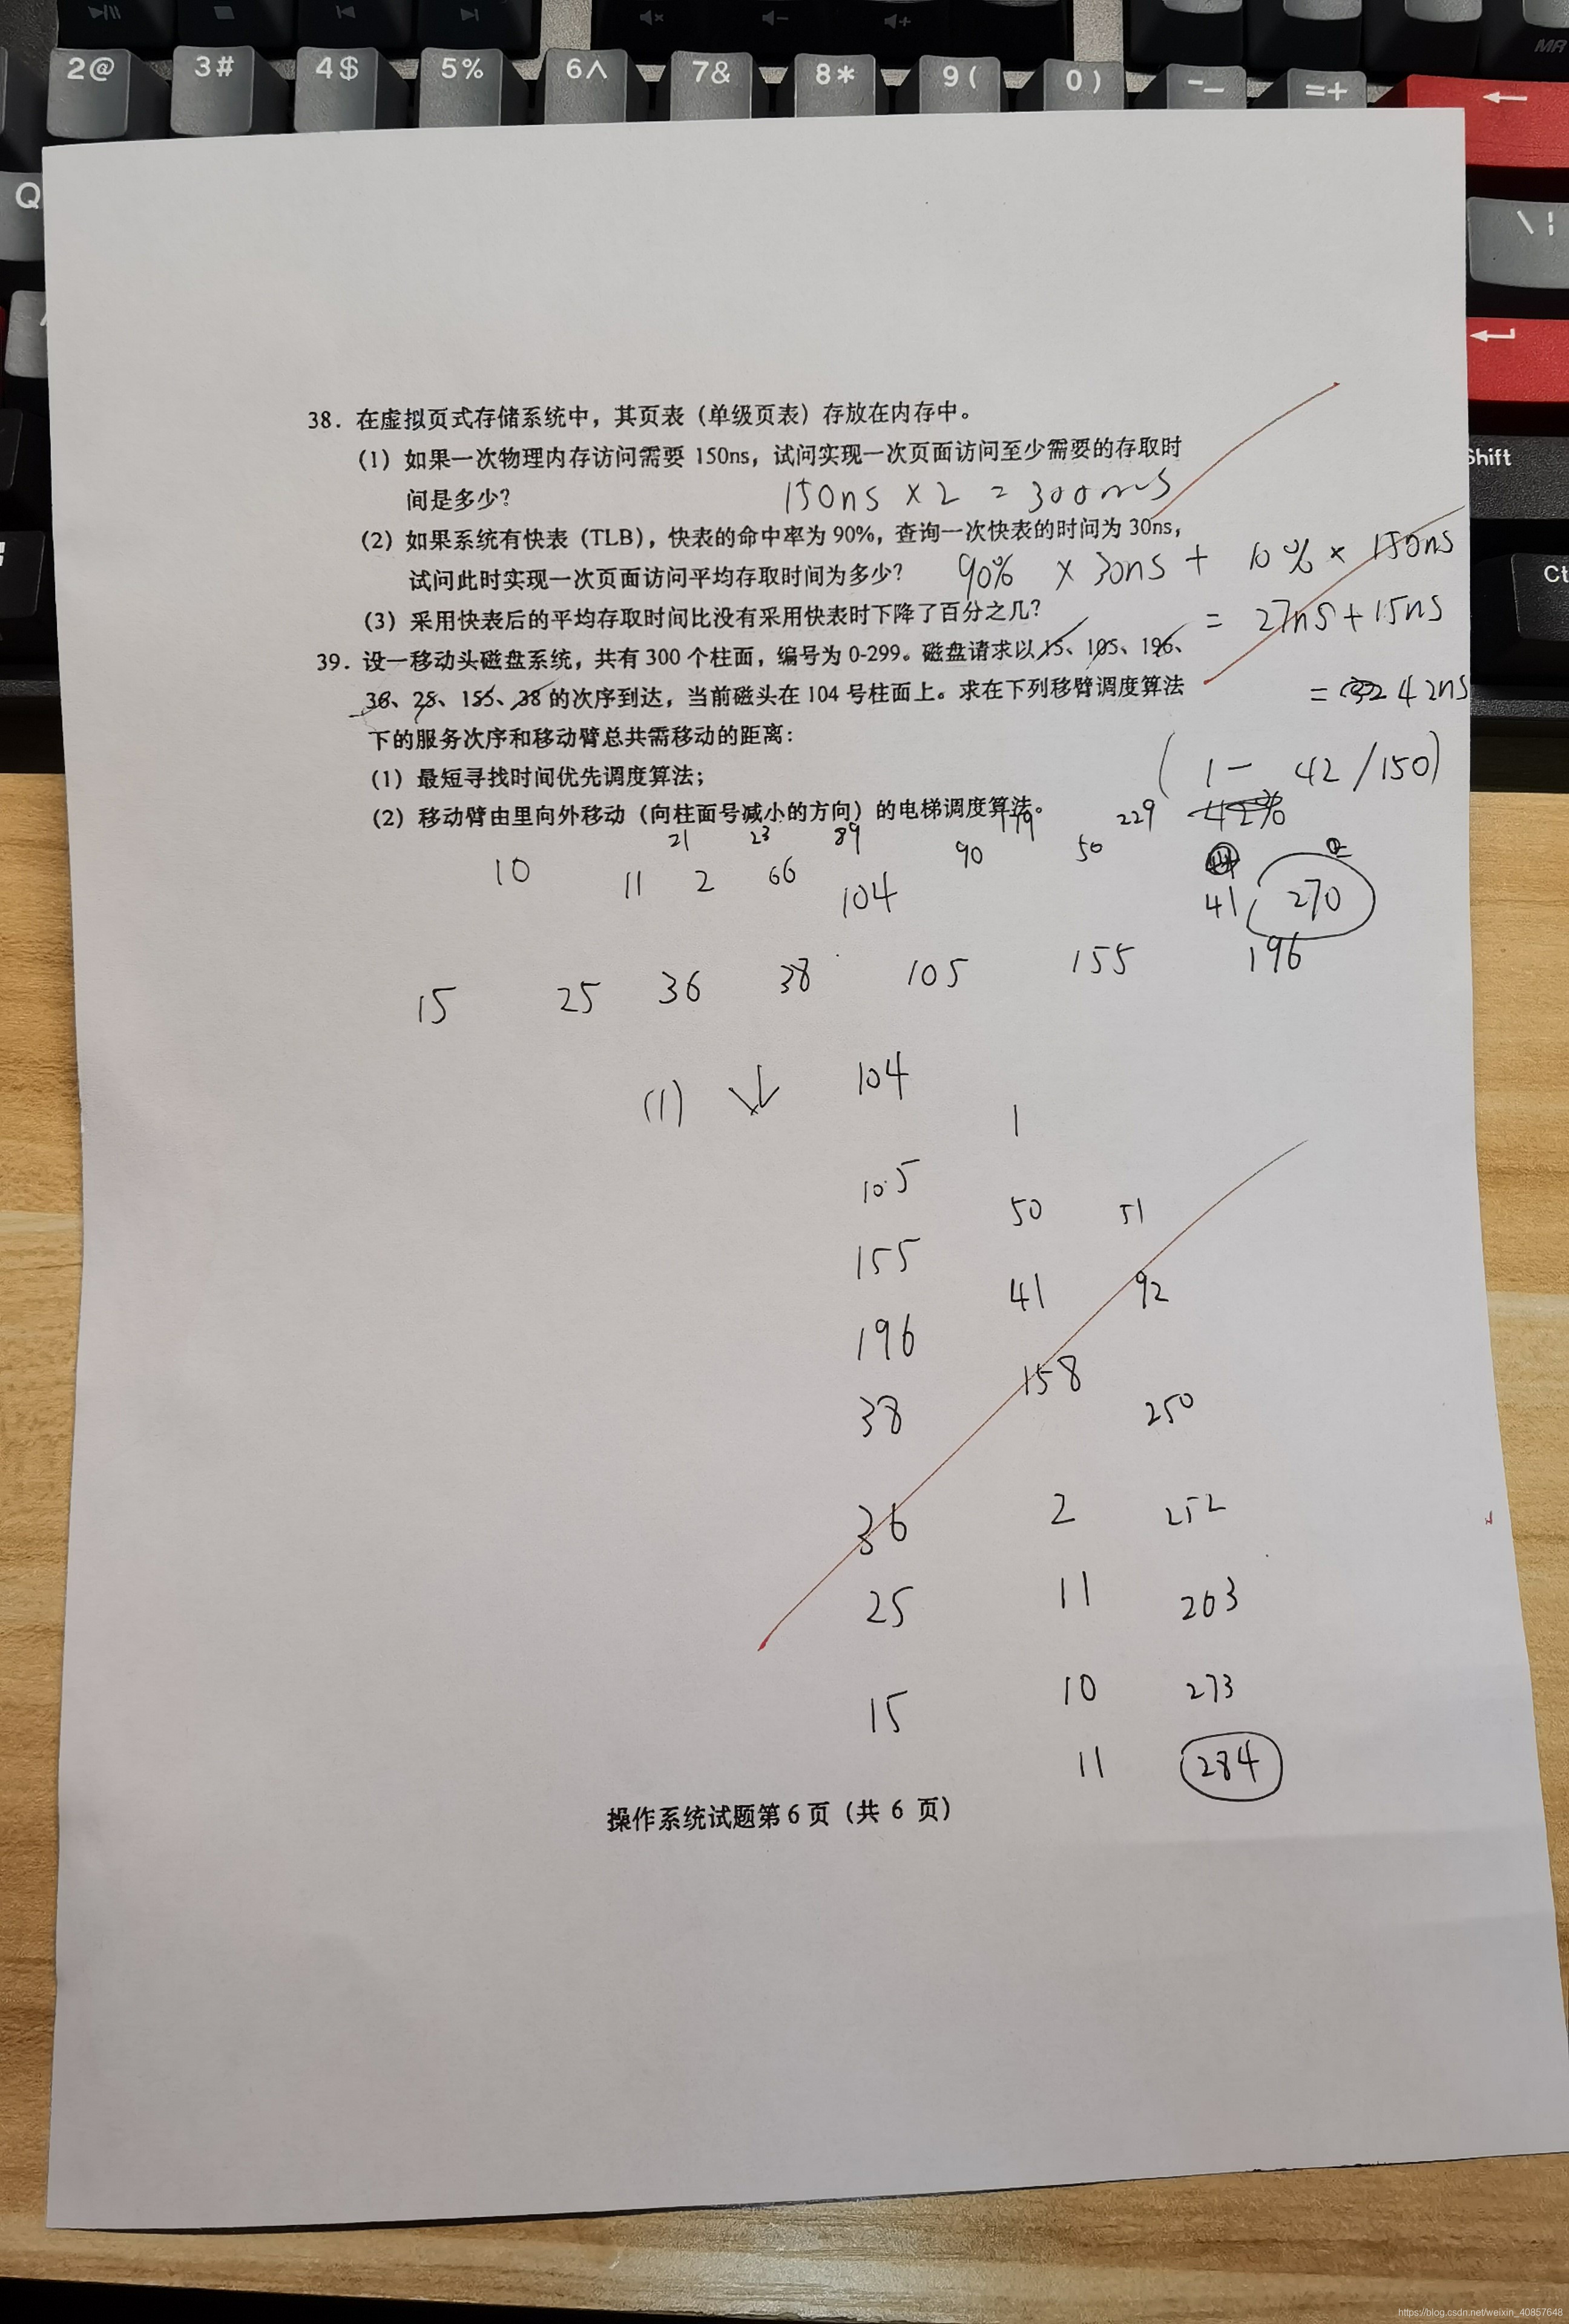 2@ 3# 4$ 5% 6^ 7& 8* 9( 0) -_ =+ ←
MR
Q
\ |
Shift
Ct
38. 在虚拟页式存储系统中，其页表（单级页表）存放在内存中。
（1）如果一次物理内存访问需要 150ns，试问实现一次页面访问至少需要的存取时
间是多少？ 150ns × 2 = 300ns
（2）如果系统有快表（TLB），快表的命中率为 90%，查询一次快表的时间为 30ns，
试问此时实现一次页面访问平均存取时间为多少？ 90% × 30ns + 10% × 150ns
（3）采用快表后的平均存取时间比没有采用快表时下降了百分之几？ = 27ns + 15ns
39. 设一移动头磁盘系统，共有 300 个柱面，编号为 0-299。磁盘请求以 15、105、196、
36、25、155、38 的次序到达，当前磁头在 104 号柱面上。求在下列移臂调度算法 = 42ns
下的服务次序和移动臂总共需移动的距离：
（1）最短寻找时间优先调度算法； (1 - 42/150)
（2）移动臂由里向外移动（向柱面号减小的方向）的电梯调度算法。
21 23 89 179 229 42%
10 11 2 66 104 90 50 41 270
15 25 36 38 105 155 196
(1) ↓ 104
1
105
50 51
155
41 92
196
158
38 250
36 2 252
25 11 263
15 10 273
11 284
操作系统试题第 6 页（共 6 页）
https://blog.csdn.net/weixin_40857648